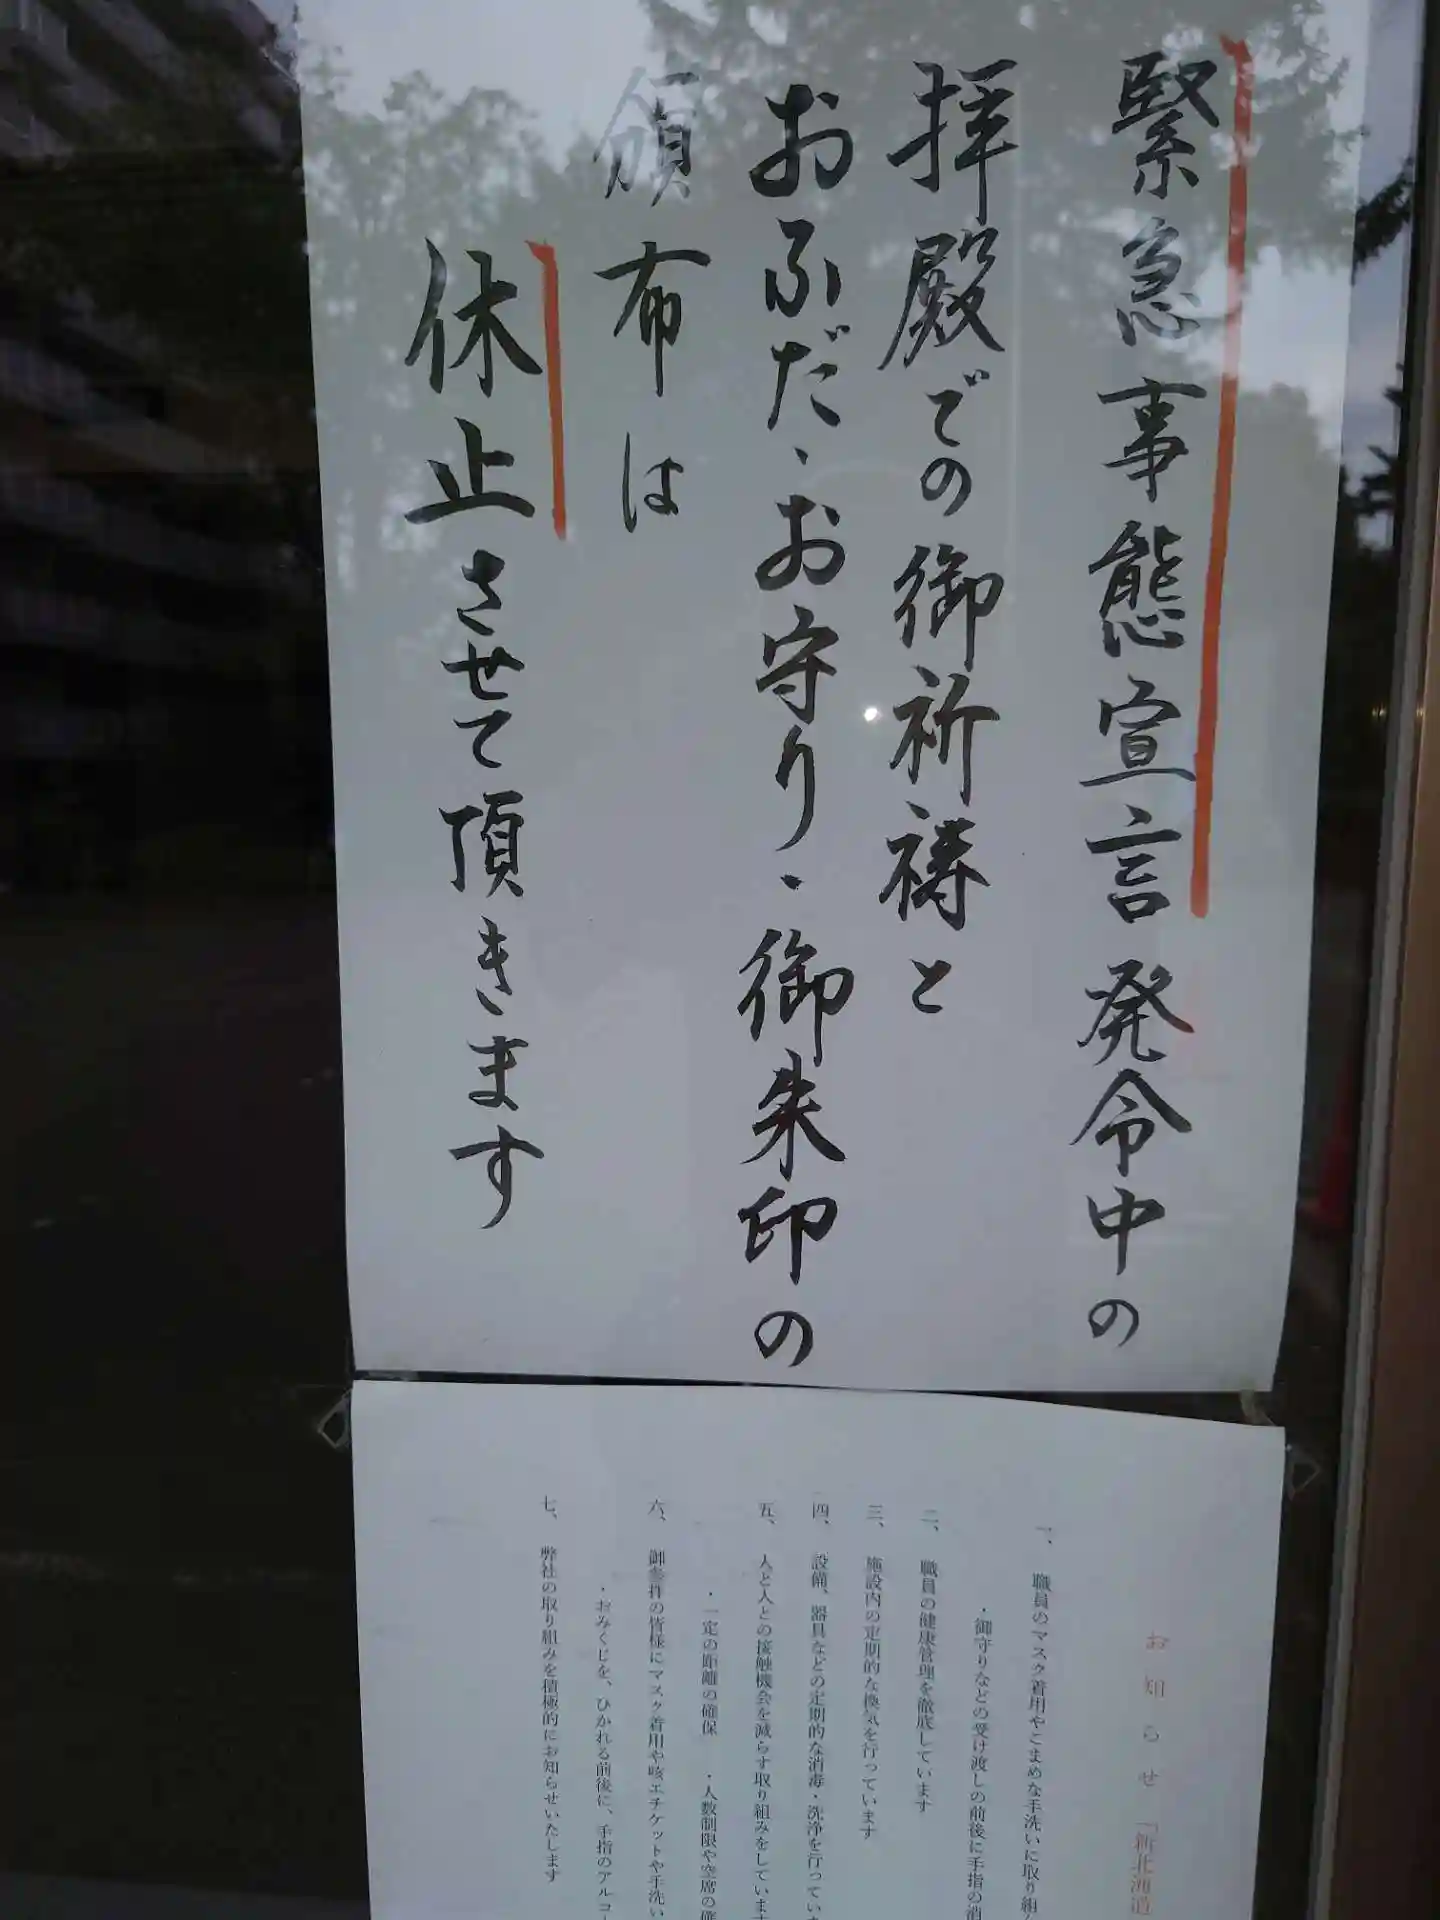 緊急事態宣言発令中の
拝殿での御祈祷と
おふだ、お守り・御朱印の
頒布は
休止させて頂きます
お知らせ「新北海道
一、職員のマスク着用やこまめな手洗いに取り組
・御守りなどの受け渡しの前後に手指の消
二、職員の健康管理を徹底しています
三、施設内の定期的な換気を行っています
四、設備、器具などの定期的な消毒・洗浄を行ってい
五、人と人との接触機会を減らす取り組みをしています
・一定の距離の確保 ・人数制限や空席の確
六、御参拝の皆様にマスク着用や咳エチケットや手洗い
・おみくじを、ひかれる前後に、手指のアルコー
七、弊社の取り組みを積極的にお知らせいたします